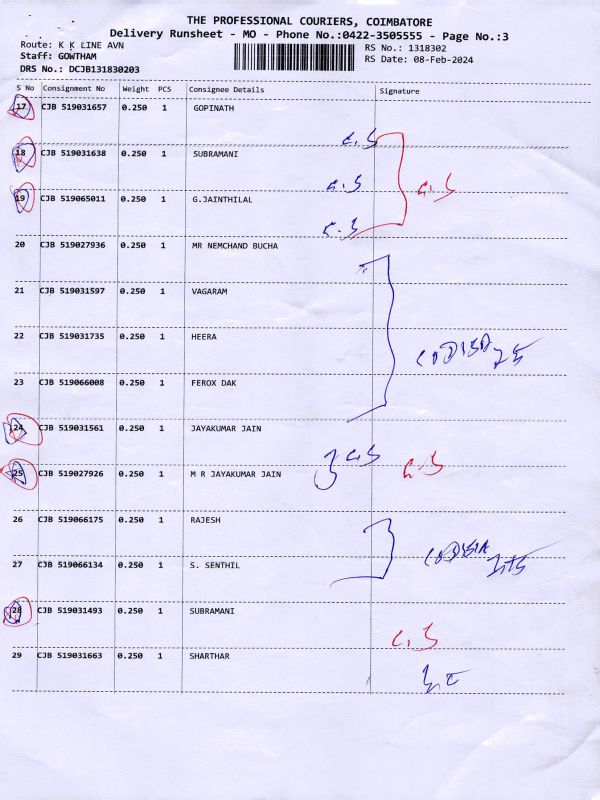 THE PROFESSIONAL COURIERS, COIMBATORE
Delivery Runsheet - MO - Phone No.:0422-3505555 - Page No.:3
Route: K K LINE AVN
RS No.: 1318302
Staff: GOWTHAM
RS Date: 08-Feb-2024
DRS No.: DCJB131830203
S No Consignment No Weight PCS Consignee Details Signature
17 CJB 519031657 0.250 1 GOPINATH
18 CJB 519031638 0.250 1 SUBRAMANI
19 CJB 519065011 0.250 1 G.JAINTHILAL
20 CJB 519027936 0.250 1 MR NEMCHAND BUCHA
21 CJB 519031597 0.250 1 VAGARAM
22 CJB 519031735 0.250 1 HEERA
23 CJB 519066008 0.250 1 FEROX DAK
24 CJB 519031561 0.250 1 JAYAKUMAR JAIN
25 CJB 519027926 0.250 1 M R JAYAKUMAR JAIN
26 CJB 519066175 0.250 1 RAJESH
27 CJB 519066134 0.250 1 S. SENTHIL
28 CJB 519031493 0.250 1 SUBRAMANI
29 CJB 519031663 0.250 1 SHARTHAR